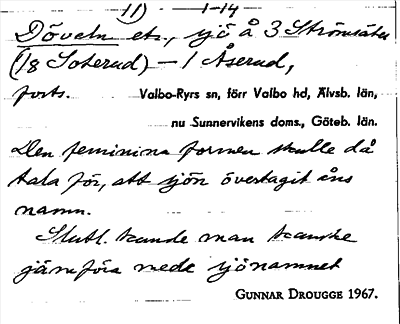 11) 1-14
Döveln etc., sjö å 3 Strömsäter
(18 Soterud) – 1 Åserud,
forts. Valbo-Ryrs sn, förr Valbo hd, Älvsb. län,
nu Sunnervikens doms., Göteb. län.
Den feminina formen skulle då
tala för, att sjön övertagit åns
namn.
Slutl. kunde man kanske
jämföra med sjönamnet
GUNNAR DROUGGE 1967.